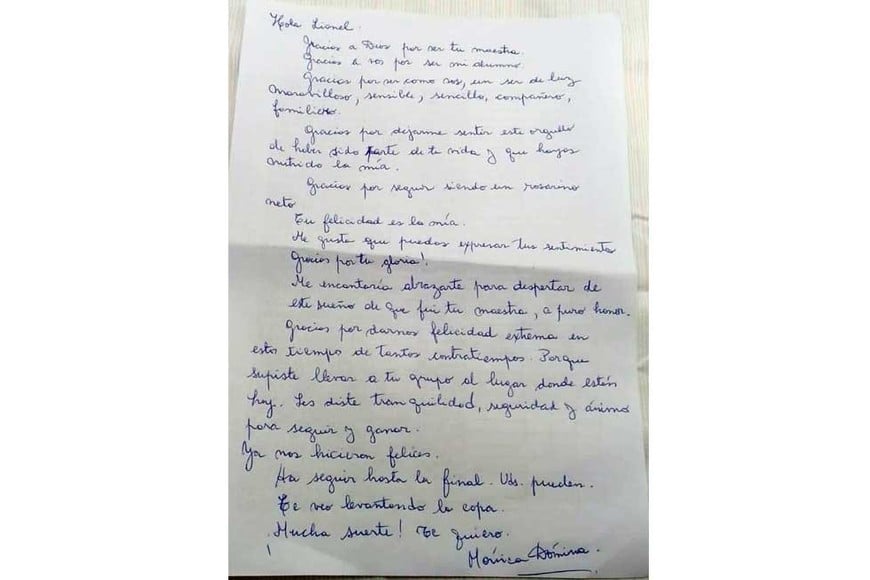 Hola Lionel.
Gracias a Dios por ser tu maestra.
Gracias a vos por ser mi alumno.
Gracias por ser como sos, un ser de luz
maravilloso, sensible, sencillo, compañero,
familiero.
Gracias por dejarme sentir este orgullo
de haber sido parte de tu vida y que hayas
nutrido la mía.
Gracias por seguir siendo un rosarino
neto
Tu felicidad es la mía.
Me gusta que puedas expresar tus sentimientos
Gracias por tu gloria!
Me encantaría abrazarte para despertar de
este sueño de que fui tu maestra, a puro honor.
Gracias por darnos felicidad extrema en
estos tiempo de tantos contratiempos. Porque
supiste llevar a tu grupo al lugar donde están
hoy. Les diste tranquilidad, seguridad y ánimo
para seguir y ganar.
Ya nos hicieron felices.
Aa seguir hasta la final. Uds. pueden.
Te veo levantando la copa.
Mucha suerte! Te quiero.
Mónica Dómina.